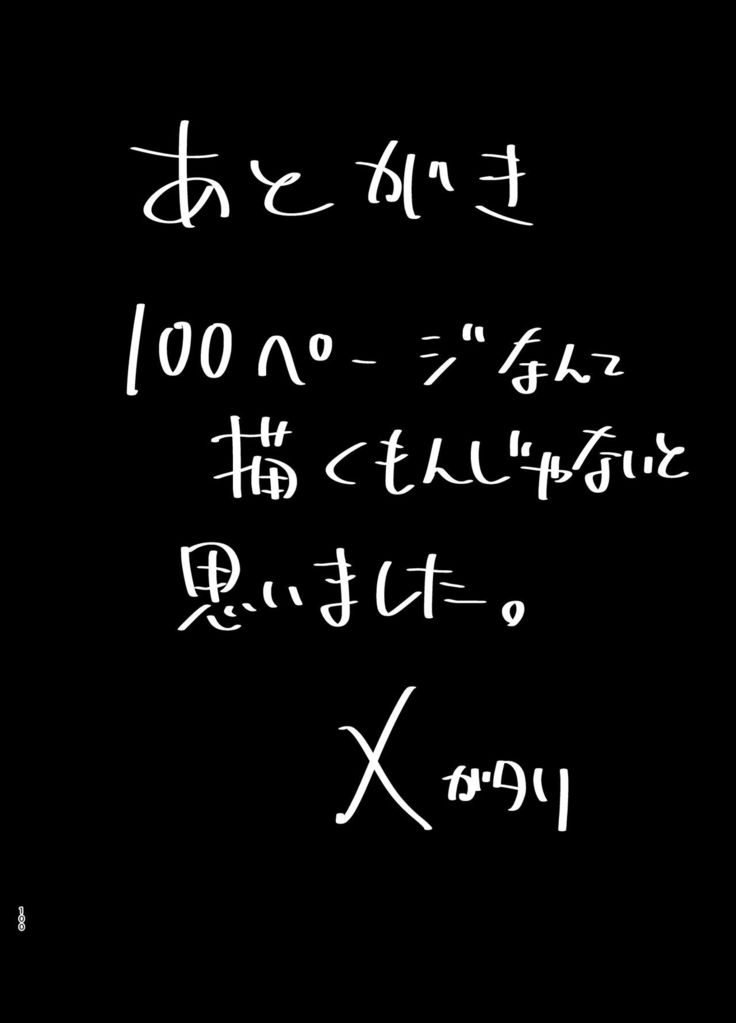 あとがき
100ページなんて
描くもんじゃないと
思いました。
メガタリ
100